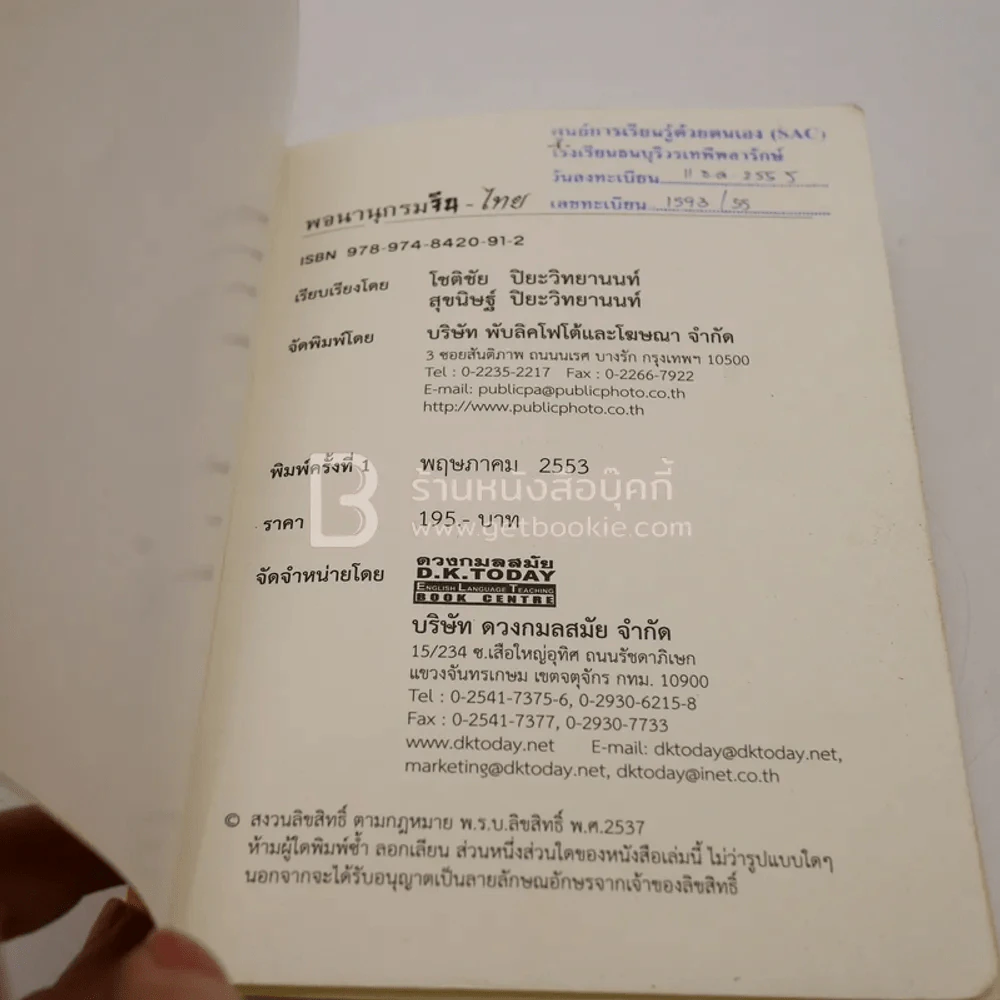 ศูนย์การเรียนรู้ด้วยตนเอง (SAC)
โรงเรียนธนบุรีวรเทพีพลารักษ์
วันลงทะเบียน 2555
เลขทะเบียน 1593/55
พจนานุกรมจีน - ไทย
ISBN 978-974-8420-91-2
เรียบเรียงโดย โชติชัย ปิยะวิทยานนท์
สุขนิษฐ์ ปิยะวิทยานนท์
จัดพิมพ์โดย บริษัท พับลิคโฟโต้และโฆษณา จำกัด
3 ซอยสันติภาพ ถนนนเรศ บางรัก กรุงเทพฯ 10500
Tel : 0-2235-2217 Fax : 0-2266-7922
E-mail: publicpa@publicphoto.co.th
http://www.publicphoto.co.th
พิมพ์ครั้งที่ 1 พฤษภาคม 2553
ร้านหนังสือบุ๊คกี้
ราคา 195.- บาท
www.getbookie.com
จัดจำหน่ายโดย ดวงกมลสมัย
D.K.TODAY
ENGLISH LANGUAGE TEACHING
BOOK CENTRE
บริษัท ดวงกมลสมัย จำกัด
15/234 ซ.เสือใหญ่อุทิศ ถนนรัชดาภิเษก
แขวงจันทรเกษม เขตจตุจักร กทม. 10900
Tel : 0-2541-7375-6, 0-2930-6215-8
Fax : 0-2541-7377, 0-2930-7733
www.dktoday.net E-mail: dktoday@dktoday.net,
marketing@dktoday.net, dktoday@inet.co.th
© สงวนลิขสิทธิ์ ตามกฎหมาย พ.ร.บ.ลิขสิทธิ์ พ.ศ.2537
ห้ามผู้ใดพิมพ์ซ้ำ ลอกเลียน ส่วนหนึ่งส่วนใดของหนังสือเล่มนี้ ไม่ว่ารูปแบบใดๆ
นอกจากจะได้รับอนุญาตเป็นลายลักษณอักษรจากเจ้าของลิขสิทธิ์